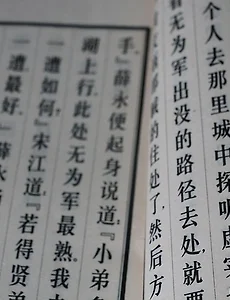 个人去那里城中探听虚
看无为军出没的路径去处，就要
贼的住处了，然后方
手。』薛永便起身说道：『小弟多
湖上行，此处无为军最熟。我
一遭如何？』宋江道：『若得贤
一遭最好。』薛永